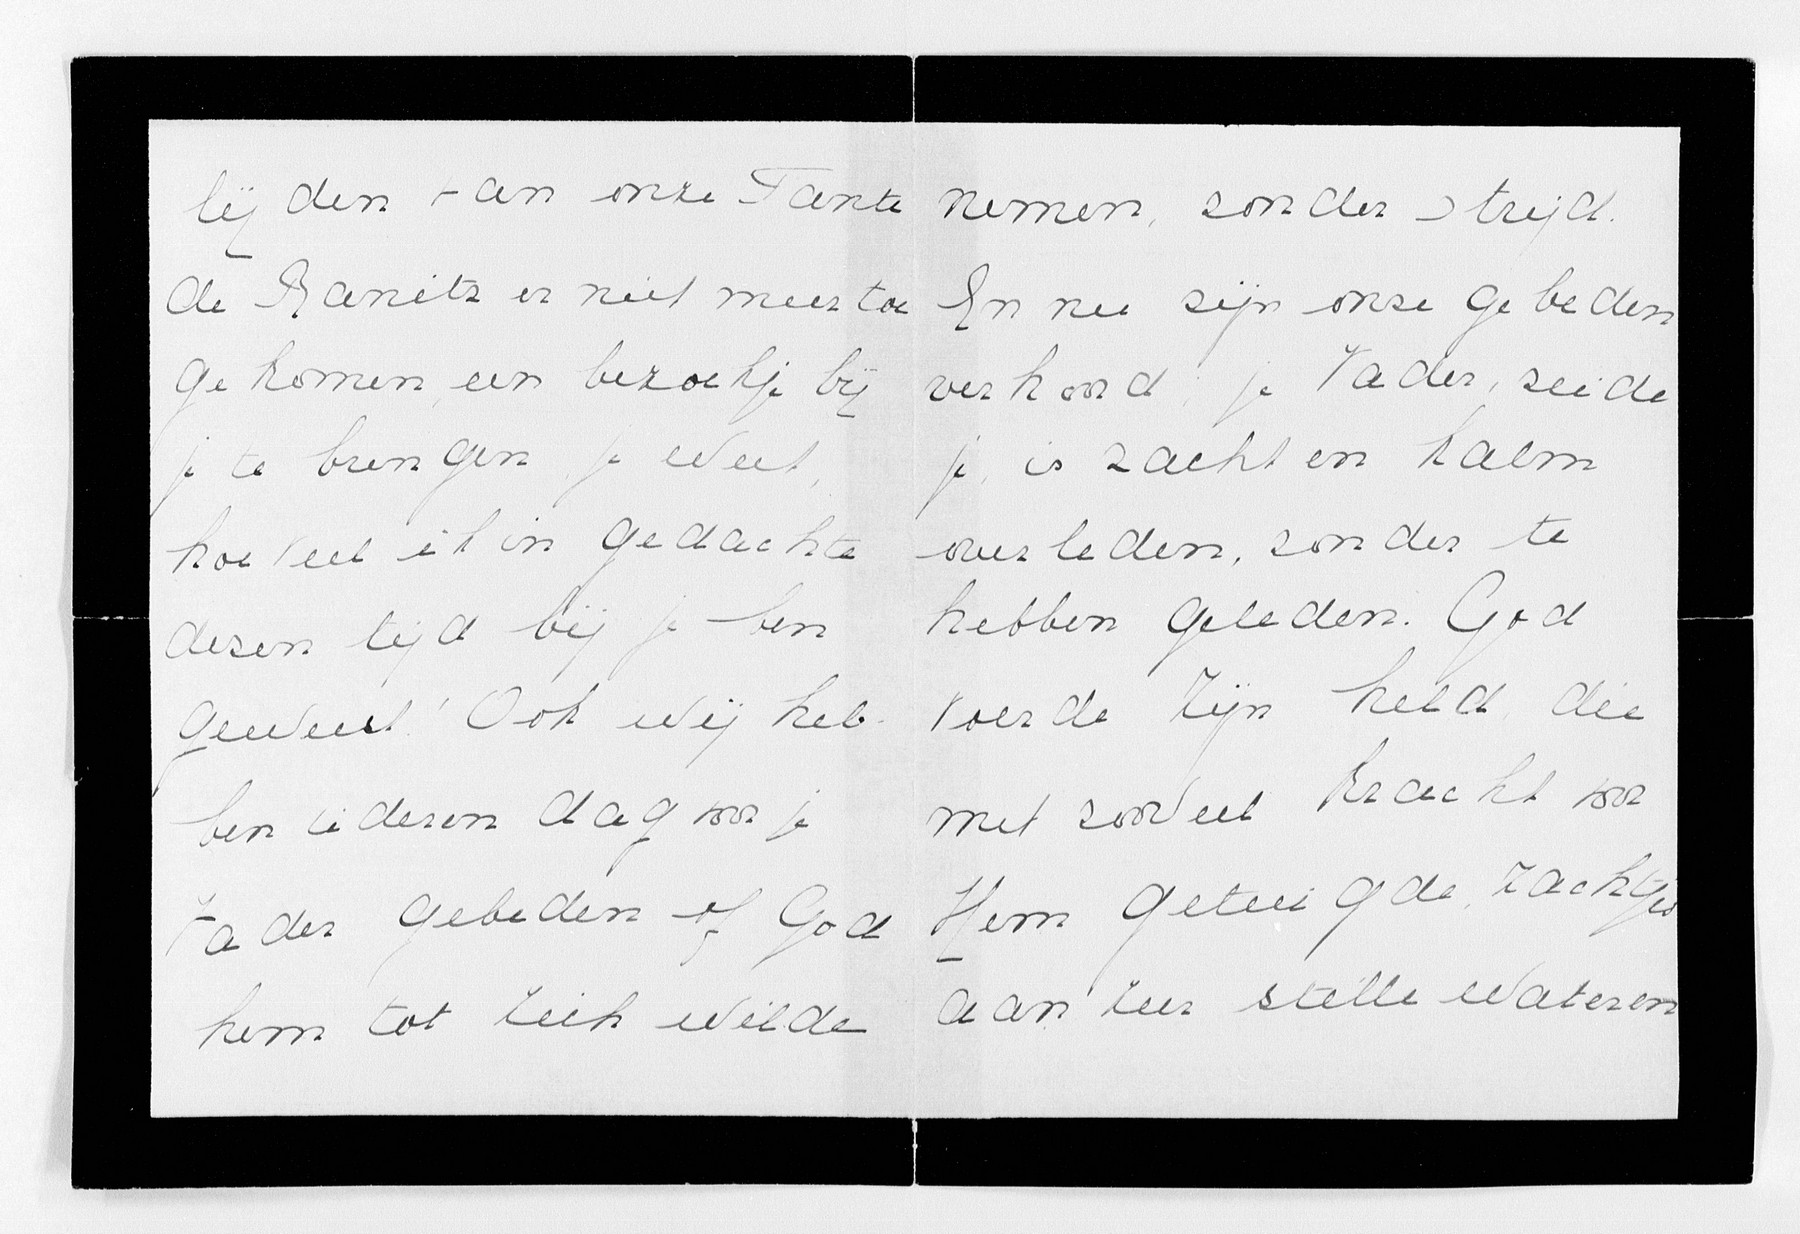 lijden van onze Tante
de Ranitz er niet meer toe
gekomen, een bezoekje bij
je te brengen, je weet,
hoeveel ik in gedachte
dezen tijd bij je ben
geweest! Ook wij heb-
ben iederen dag voor je
Vader gebeden of God
hem tot Zich wilde
nemen, zonder strijd.
En nu zijn onze gebeden
verhoord; je Vader, zeide
je, is zacht en kalm
overleden, zonder te
hebben geleden. God
voerde Zijn held, die
met zooveel kracht voor
Hem getuigde, zachtjes
aan zeer stille wateren